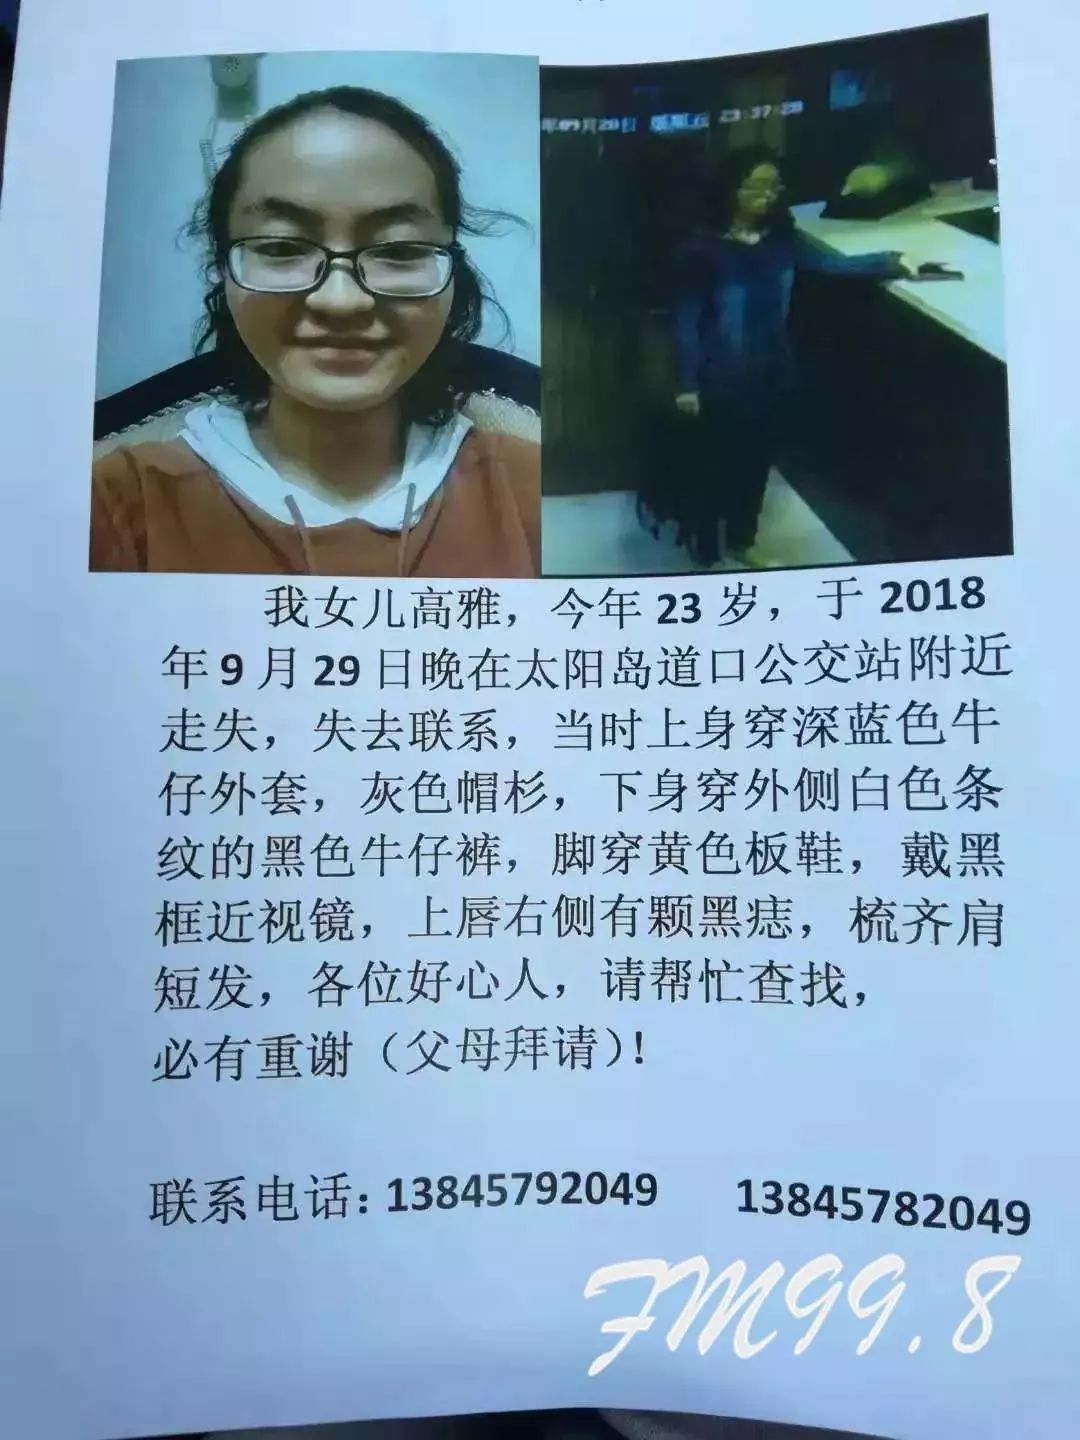 年09月28日 星期五 23:37:28
我女儿高雅，今年 23 岁，于 2018
年 9 月 29 日晚在太阳岛道口公交站附近
走失，失去联系，当时上身穿深蓝色牛
仔外套，灰色帽衫，下身穿外侧白色条
纹的黑色牛仔裤，脚穿黄色板鞋，戴黑
框近视镜，上唇右侧有颗黑痣，梳齐肩
短发，各位好心人，请帮忙查找，
必有重谢（父母拜请）！
联系电话：13845792049 13845782049
FM99.8